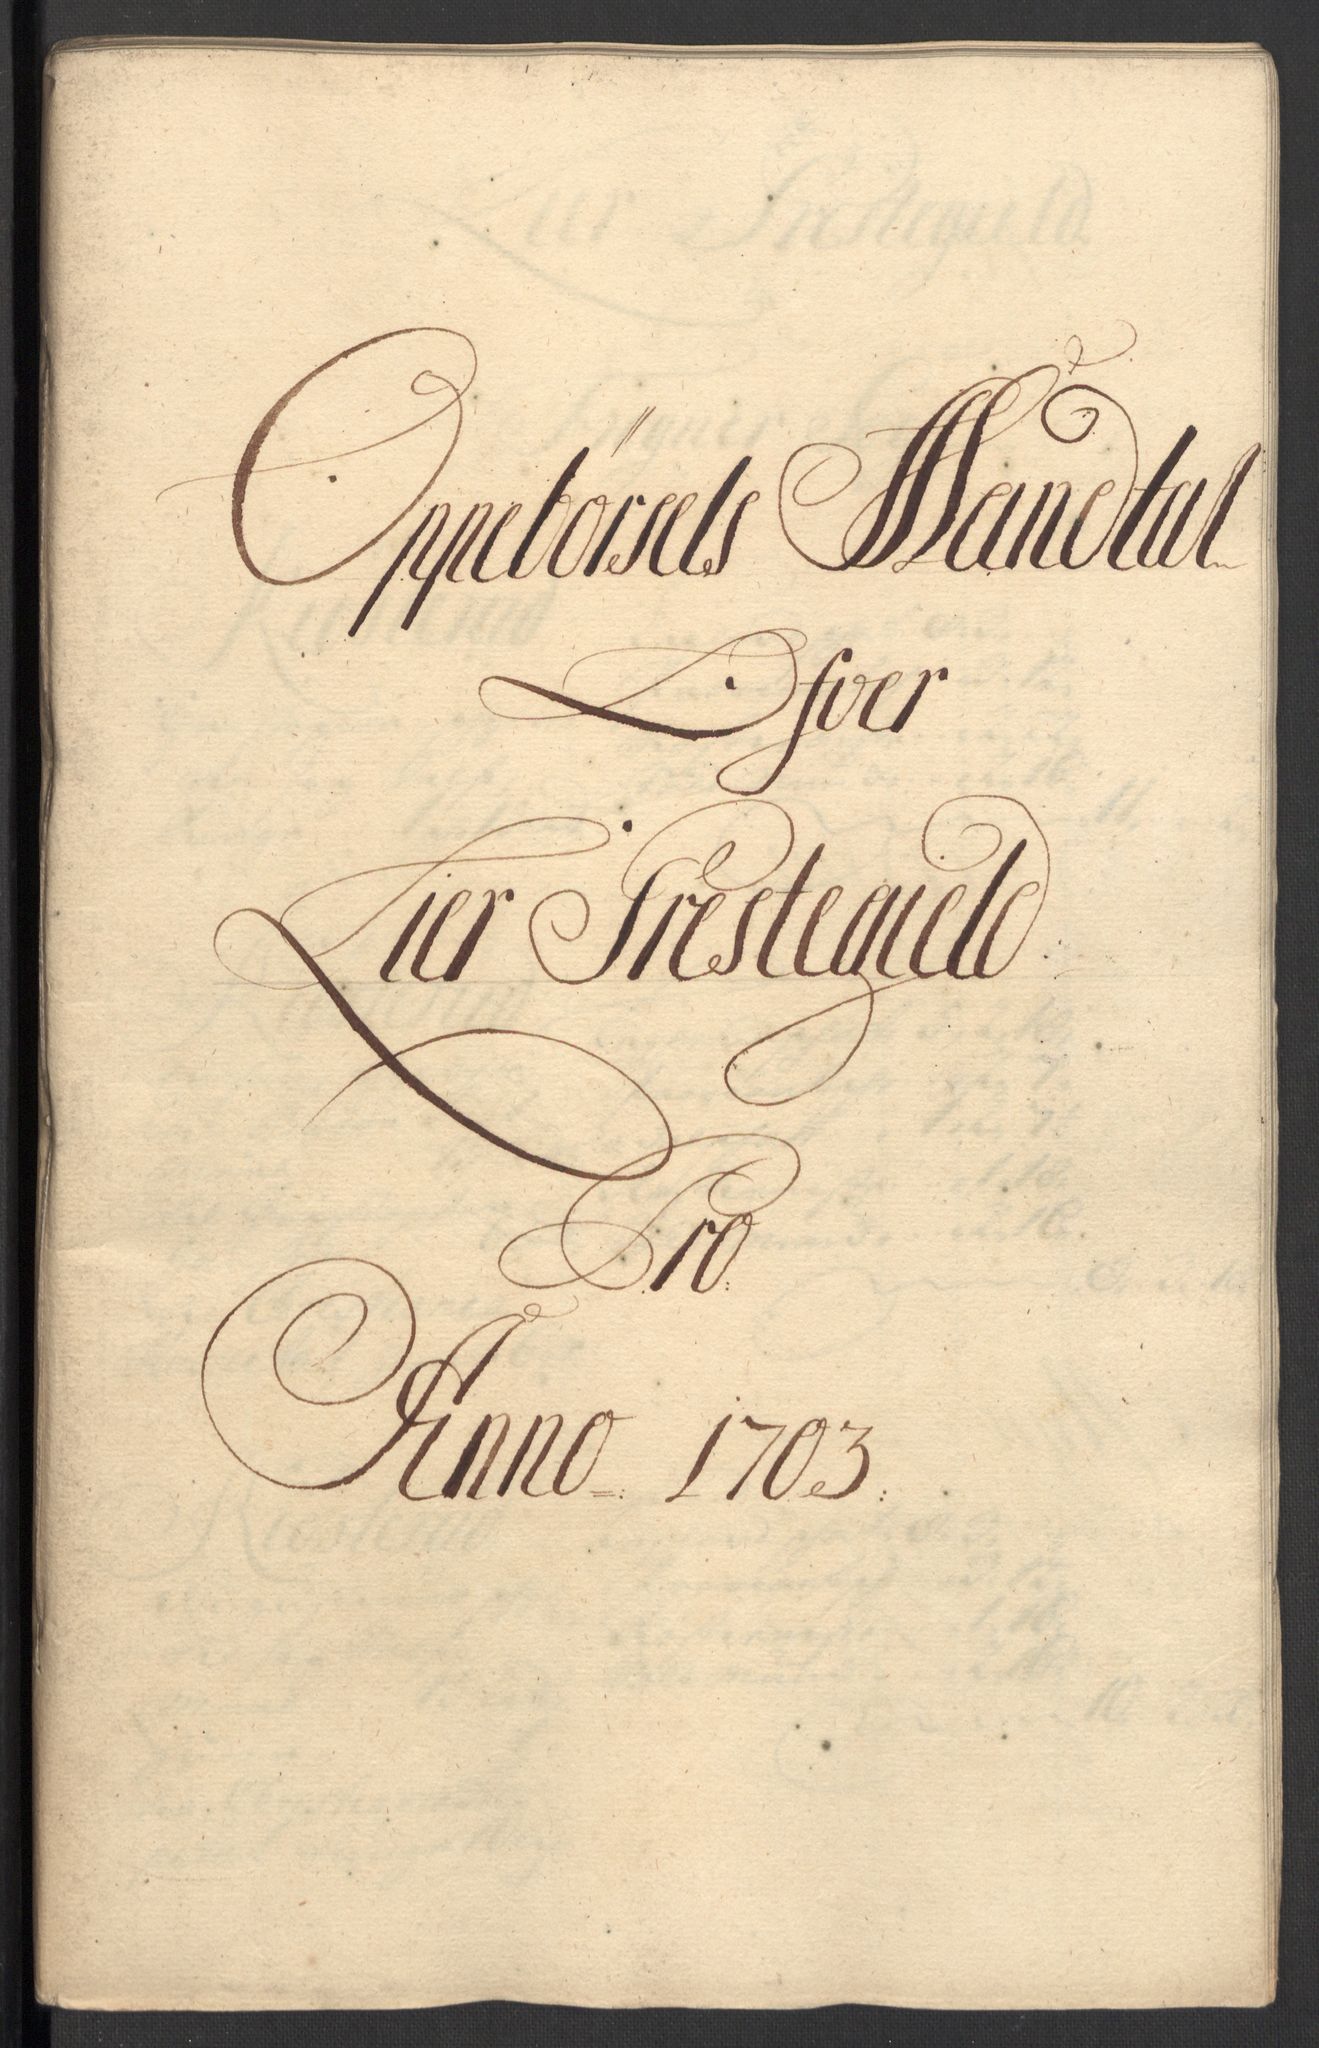 Oppebörsels Mandtal
Ofver
Lier Prestegield
Pro
Anno 1703